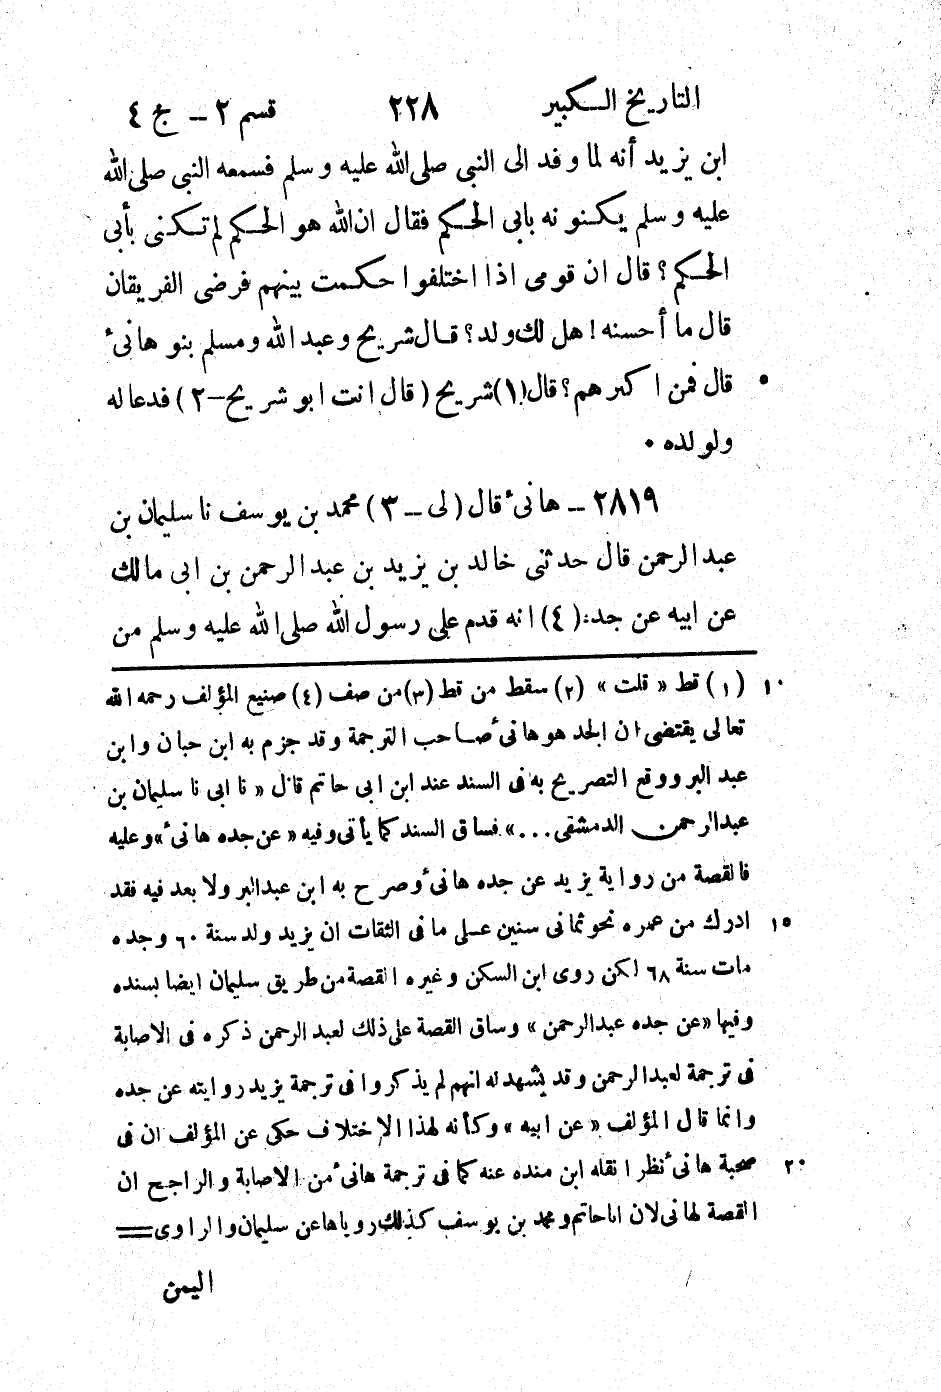 التاريخ الكبير ٢٢٨ قسم ٢ – ج ٤
ابن يزيد أنه لما وفد الى النبى صلى الله عليه وسلم فسمعه النبى صلى الله
عليه وسلم يكنونه بابى الحكم فقال ان الله هو الحكم لم تكنى بأبى
الحكم؟ قال ان قومى اذا اختلفوا حكمت بينهم فرضى الفريقان
قال ما أحسنه! هل لك ولد؟ قال شريح وعبد الله ومسلم بنو هانىء
قال فمن اكبرهم؟ قال(١) شريح (قال انت ابو شريح–٢) فدعا له
ولولده ٠
٢٨١٩ – هانىء قال (لى – ٣) محمد بن يوسف نا سليمان بن
عبد الرحمن قال حدثنى خالد بن يزيد بن عبد الرحمن بن ابى مالك
عن ابيه عن جده(٤) انه قدم على رسول الله صلى الله عليه وسلم من
(١) قط « قلت » (٢) سقط من قط (٣) من صف (٤) صنيع المؤلف رحمه الله ١٠
تعالى يقتضى ان الجد هو هانىء صاحب الترجمة وقد جزم به ابن حبان وابن
عبد البر ووقع التصريح به فى السند عند ابن ابى حاتم قال « نا ابى نا سليمان بن
عبد الرحمن الدمشقى ...» فساق السند كما يأتى وفيه « عن جده هانىء» وعليه
فالقصة من رواية يزيد عن جده هانىء وصرح به ابن عبد البر ولا بعد فيه فقد
ادرك من عمره نحو ثمانى سنين على ما فى الثقات ان يزيد ولد سنة ٦٠ وجده ١٥
مات سنة ٦٨ لكن روى ابن السكن وغيره القصة من طريق سليمان ايضا بسنده
وفيها «عن جده عبد الرحمن » وساق القصة على ذلك لعبد الرحمن ذكره فى الاصابة
فى ترجمة لعبد الرحمن وقد يشهد له انهم لم يذكروا فى ترجمة يزيد روايته عن جده
وانما قال المؤلف « عن ابيه » وكأنه لهذا الاختلاف حكى عن المؤلف ان فى
صحبة هانىء نظرا نقله ابن منده عنه كما فى ترجمة هانىء من الاصابة والراجح ان ٢٠
القصة لهانى لان اباحاتم ومحمد بن يوسف كذلك روياها عن سليمان والراوى =
اليمن